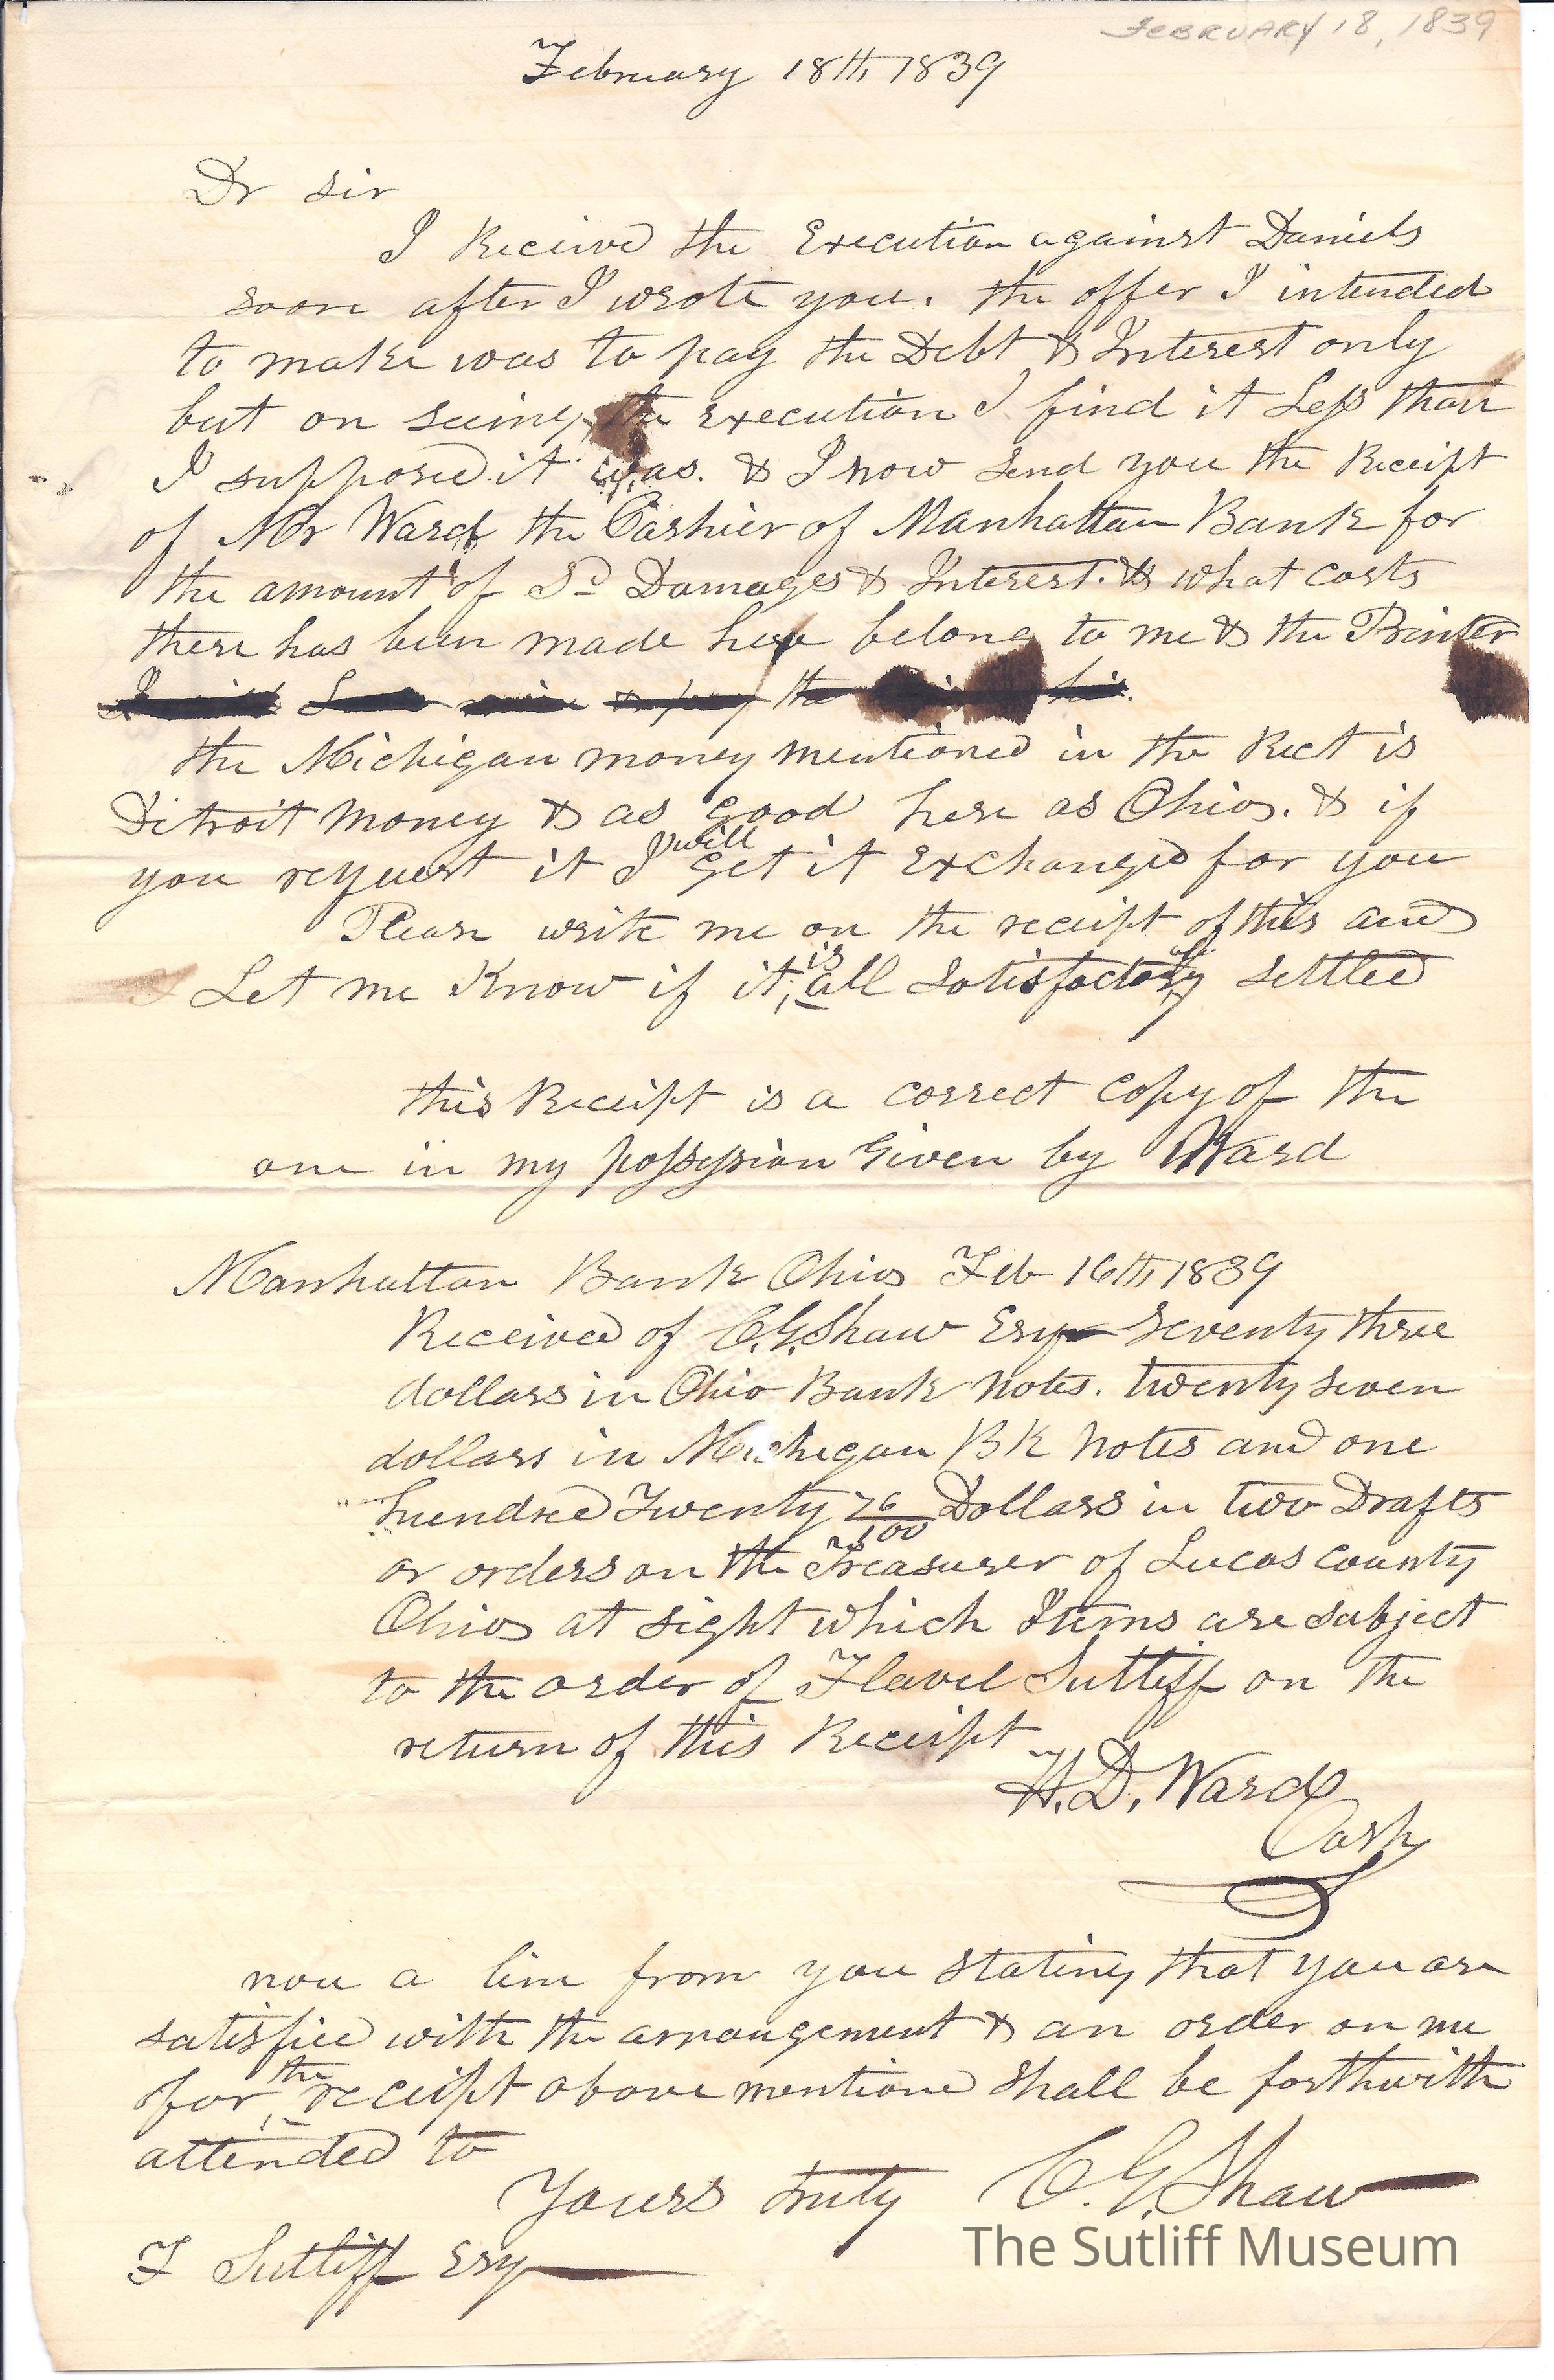 FEBRUARY 18, 1839
February 18th 1839
Dr sir
I Receivd the Execution against Daniels
soon after I wrote you. the offer I intended
to make was to pay the Debt & Interest only
but on seeing the execution I find it Less than
I supposed it was. & I now send you the Receipt
of Mr Ward the Cashier of Manhattan Bank for
the amount of Sd Damages & Interest. & what costs
there has been made here belong to me & the Printer
& pay the
the Michigan money mentioned in the Rect is
Detroit money & as good here as Ohio. & if
you request it I will get it exchanged for you
Please write me on the receipt of this and
Let me Know if it is all satisfactory settled
this Receipt is a correct copy of the
one in my possession Given by Ward
Manhattan Bank Ohio Feb 16th 1839
Received of C.G. Shaw Esq Seventy three
dollars in Ohio Bank notes. twenty seven
dollars in Michigan BK notes and one
hundred Twenty 76/100 Dollars in two Drafts
or orders on the Treasurer of Lucas county
Ohio at sight which Items are subject
to the order of Flavel Sutliff on the
return of this Receipt
H. D. Ward
Cash
now a line from you stating that you are
satisfied with the arrangement & an order on me
for the receipt above mentioned shall be forthwith
attended to
Yours truly C. G. Shaw
F Sutliff Esq
The Sutliff Museum